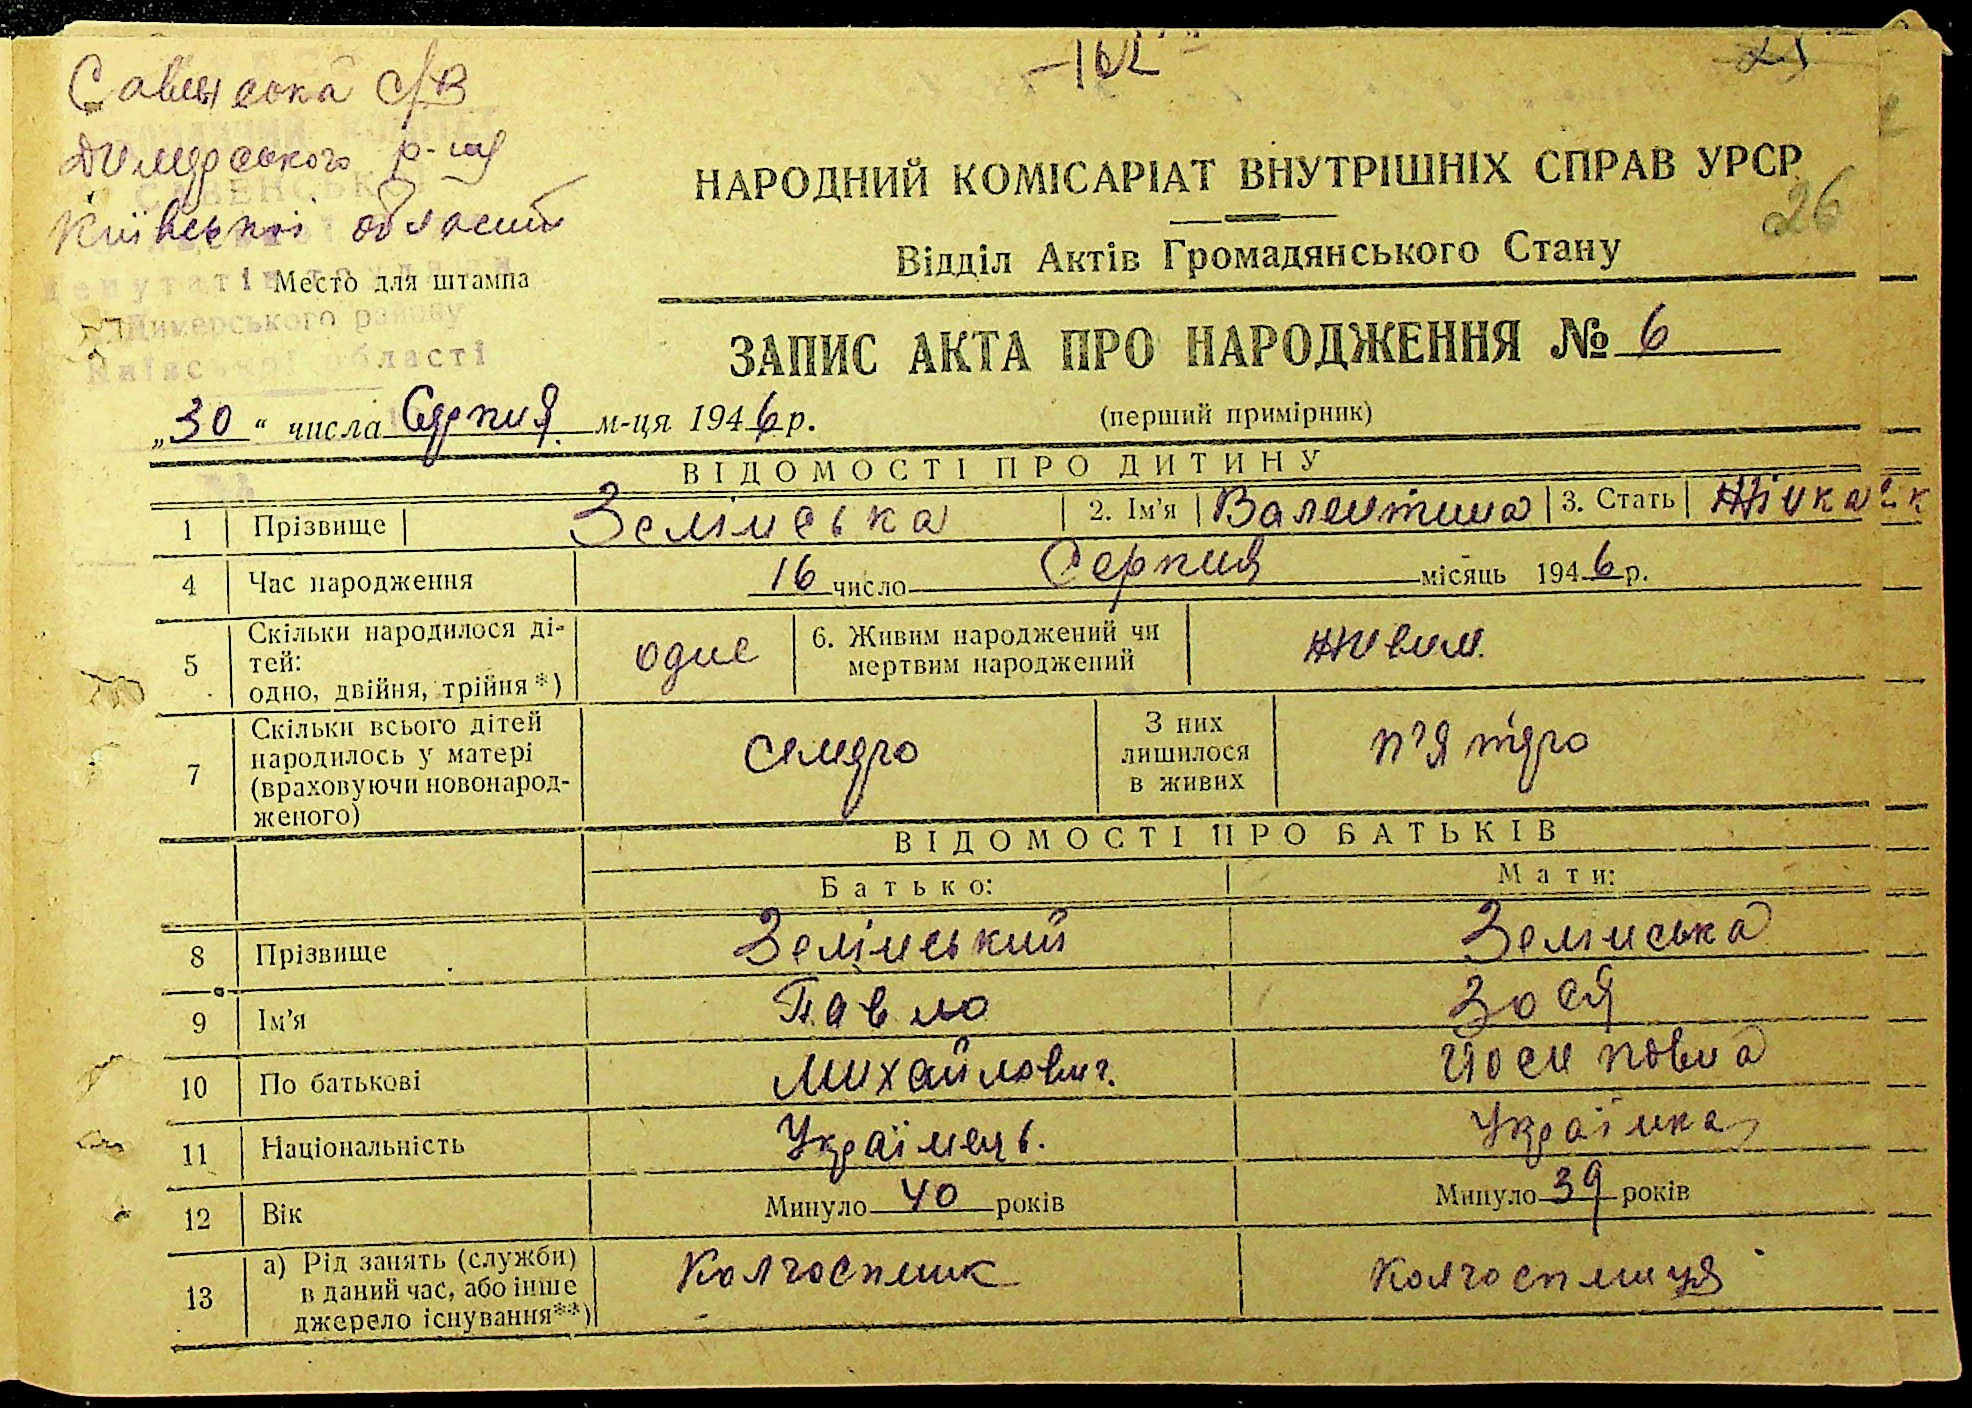 Савенська с/в
Димерського р-ну
Київської області
Место для штампа
депутатів трудящи
Димерського району
Київської області
- 162
26
НАРОДНИЙ КОМІСАРІАТ ВНУТРІШНІХ СПРАВ УРСР
Відділ Актів Громадянського Стану
ЗАПИС АКТА ПРО НАРОДЖЕННЯ № 6
„30“ числа Серпня м-ця 1946 р.
(перший примірник)
ВІДОМОСТІ ПРО ДИТИНУ
1 Прізвище Зелінська 2. Ім'я Валентина 3. Стать Жінка
4 Час народження 16 число Серпня місяць 1946 р.
5 Скільки народилося ді-
тей:
одно, двійня, трійня*) одне 6. Живим народжений чи
мертвим народжений живим.
7 Скільки всього дітей
народилось у матері
(враховуючи новонарод-
женого) семеро З них
лишилося
в живих п'ятеро
ВІДОМОСТІ ПРО БАТЬКІВ
Батько: Мати:
8 Прізвище Зелінський Зелінська
9 Ім'я Павло Зося
10 По батькові Михайлович. Йосиповна
11 Національність Українець. Українка
12 Вік Минуло 40 років Минуло 39 років
13 а) Рід занять (служби)
в даний час, або інше
джерело існування**) Колгоспник Колгоспниця